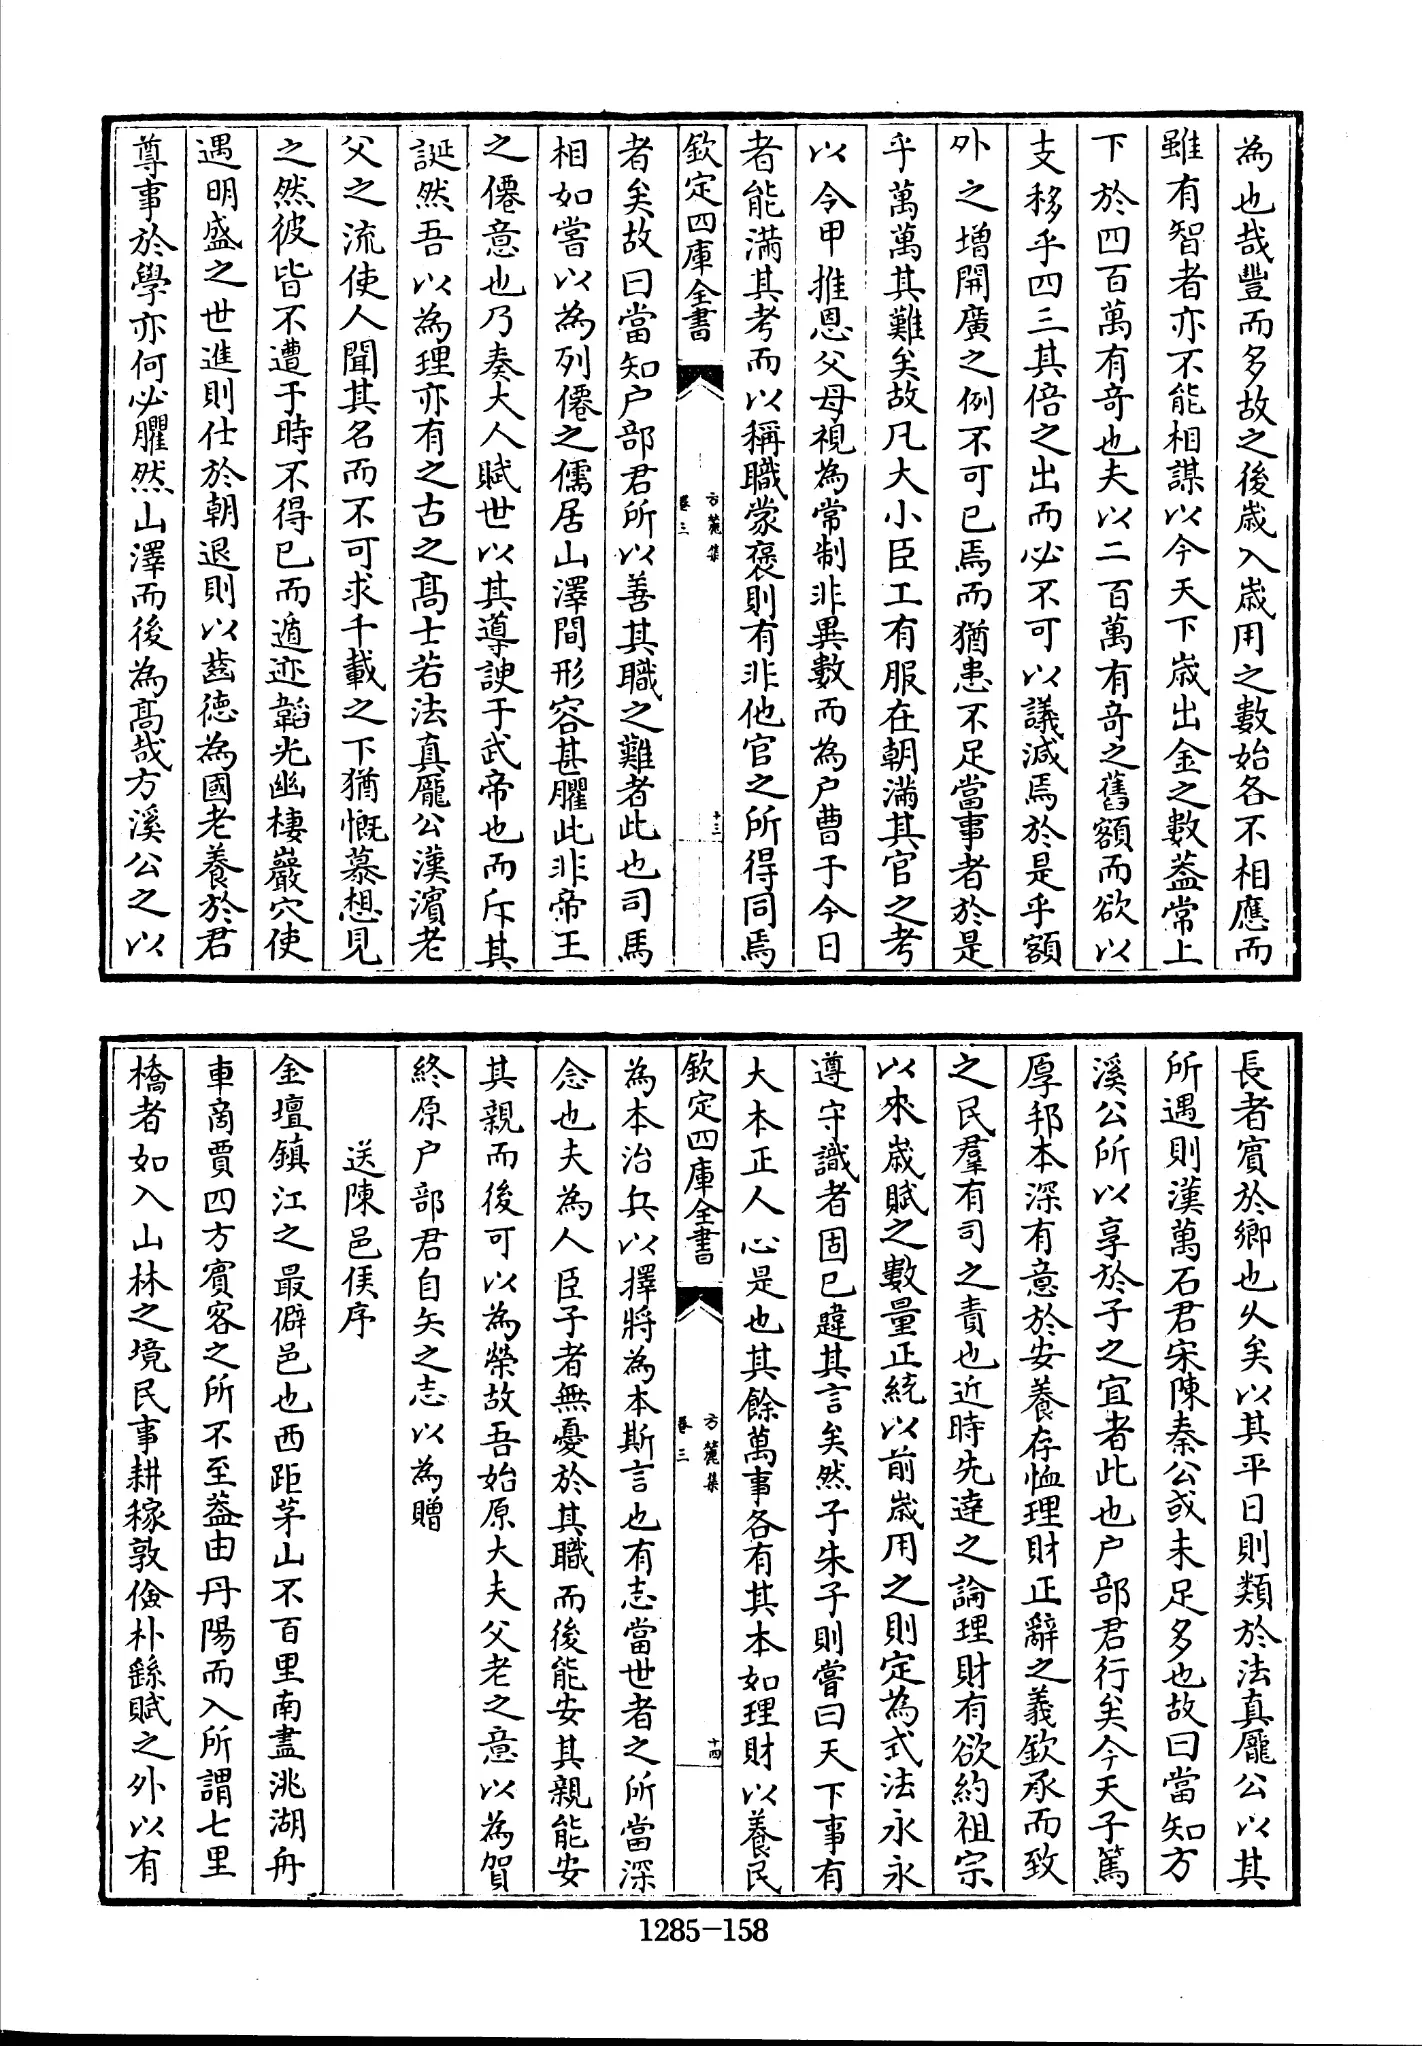 為也哉豐而多故之後歳入歳用之數始各不相應而
雖有智者亦不能相謀以今天下歳出金之數葢常上
下於四百萬有奇也夫以二百萬有奇之舊額而欲以
支移乎四三其倍之出而必不可以議減焉於是乎額
外之增開廣之例不可已焉而猶患不足當事者於是
乎萬萬其難矣故凡大小臣工有服在朝滿其官之考
以令甲推恩父母視為常制非異數而為户曹于今日
者能滿其考而以稱職蒙褒則有非他官之所得同焉
欽定四庫全書
方麓集
卷三
十三
者矣故曰當知户部君所以善其職之難者此也司馬
相如嘗以為列僊之儒居山澤間形容甚臞此非帝王
之僊意也乃奏大人賦世以其導諛于武帝也而斥其
誕然吾以為理亦有之古之髙士若法真龎公漢濱老
父之流使人聞其名而不可求千載之下猶慨慕想見
之然彼皆不遭于時不得已而遁迹韜光幽棲巖穴使
遇明盛之世進則仕於朝退則以齒徳為國老養於君
尊事於學亦何必臞然山澤而後為髙哉方溪公之以
長者賓於鄉也乆矣以其平日則類於法真龎公以其
所遇則漢萬石君宋陳秦公或未足多也故曰當知方
溪公所以享於子之宜者此也户部君行矣今天子篤
厚邦本深有意於安養存恤理財正辭之義欽承而致
之民羣有司之責也近時先達之論理財有欲約祖宗
以來歳賦之數量正統以前歳用之則定為式法永永
遵守識者固已韙其言矣然子朱子則嘗曰天下事有
大本正人心是也其餘萬事各有其本如理財以養民
欽定四庫全書
方麓集
卷三
十四
為本治兵以擇將為本斯言也有志當世者之所當深
念也夫為人臣子者無憂於其職而後能安其親能安
其親而後可以為榮故吾始原大夫父老之意以為賀
終原户部君自矢之志以為贈
送陳邑侯序
金壇鎮江之最僻邑也西距茅山不百里南盡洮湖舟
車商賈四方賓客之所不至葢由丹陽而入所謂七里
橋者如入山林之境民事耕稼敦儉朴繇賦之外以有
1285-158